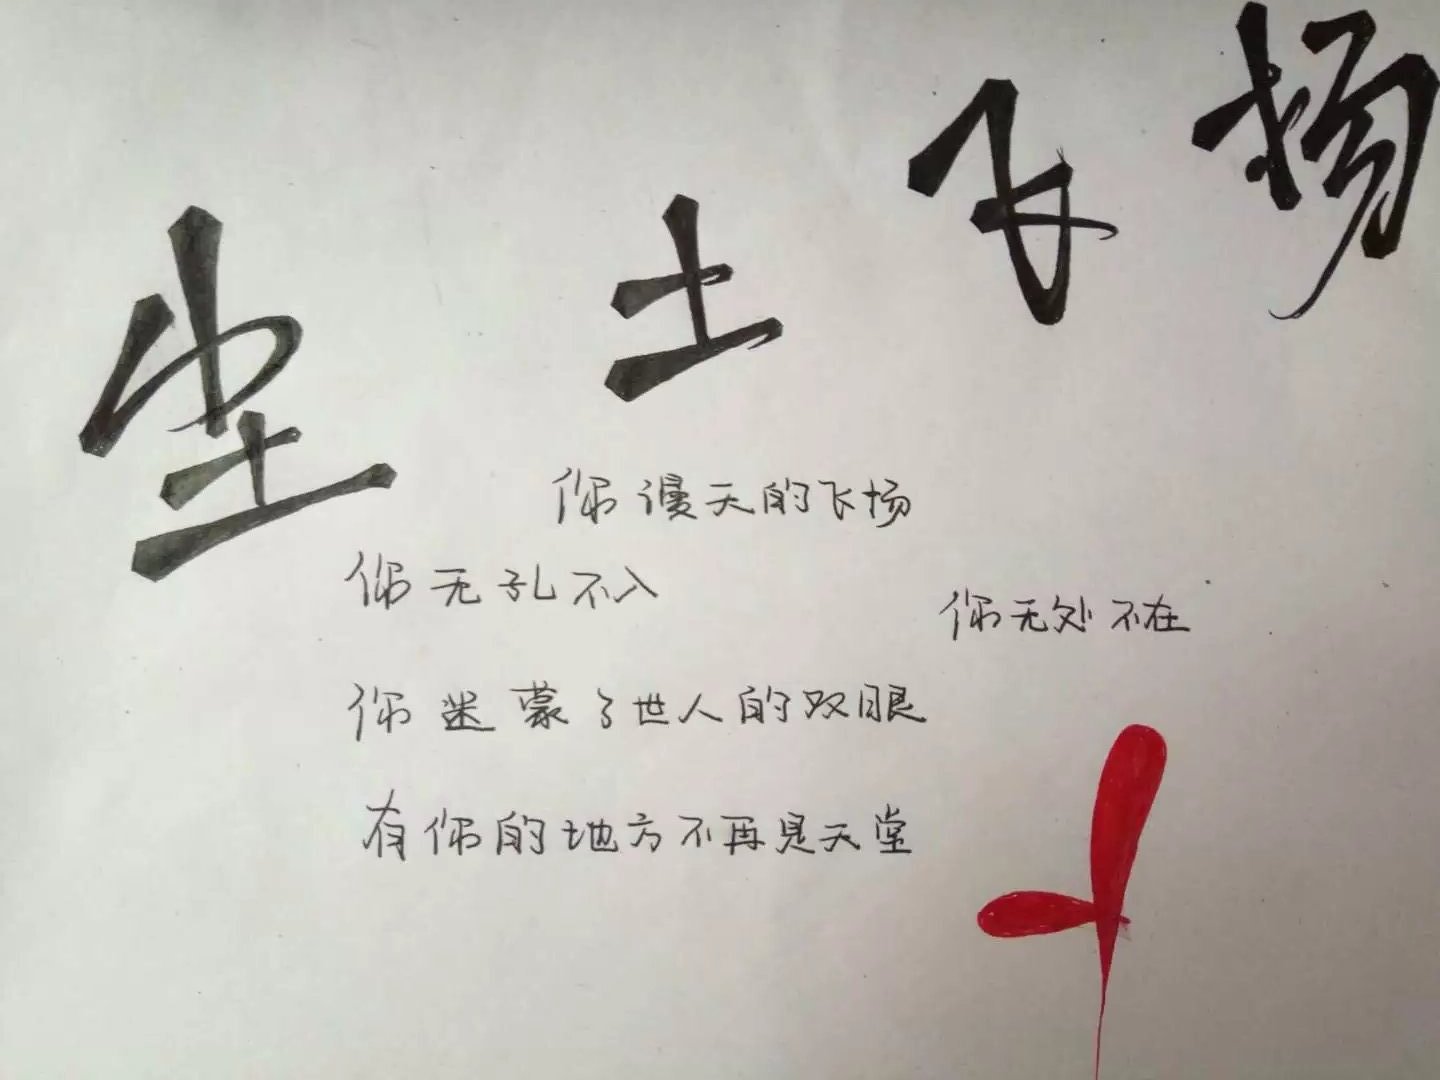 尘土飞扬
你漫天的飞扬
你无孔不入
你无处不在
你迷蒙了世人的双眼
有你的地方不再是天堂